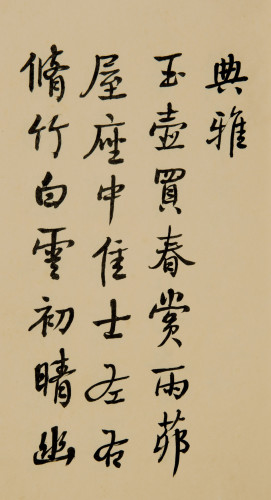 典雅
玉壺買春賞雨茆
屋座中佳士左右
脩竹白雲初晴幽